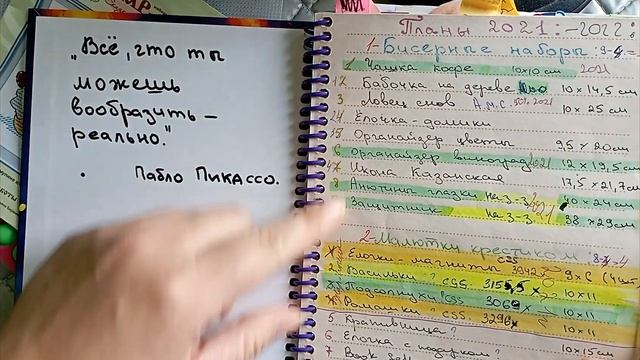 „Всё, что ты
можешь
вообразить –
реально."
Пабло Пикассо.
Планы 2021:-2022:
1-Бисерные наборы:
Чашка кофе 10х10 см 2021
Бабочка на дереве 10 х 14,5 см
3 Ловец снов А.М.С. 2021 10 х 25 см
Ёлочка-домики
Органайзер цветы 9,5 х 20см
6 Органайзер виноград 2021 12 х 19,5 см
Икона Казанская 17,5 х 21,7см
8 Анютины глазки на 3-3 х 24см
Защитник на 3-3 38 х 29см
2-Малютки крестиком
Ёлочки-магниты 9 х 6
2 Васильки? css 10х11
Подсолнухи css 3069 10х11
Ромашки? css 3298 10х11
5 Крапивница?
6 Ёлочка с подарком? 10х15см
7 Book